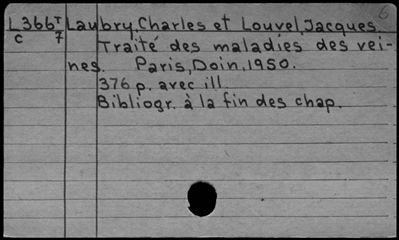 6
L366T Laubry, Charles et Louvel, Jacques
c 7 Traité des maladies des vei-
nes. Paris, Doin, 1950.
376 p. avec ill.
Bibliogr. à la fin des chap.